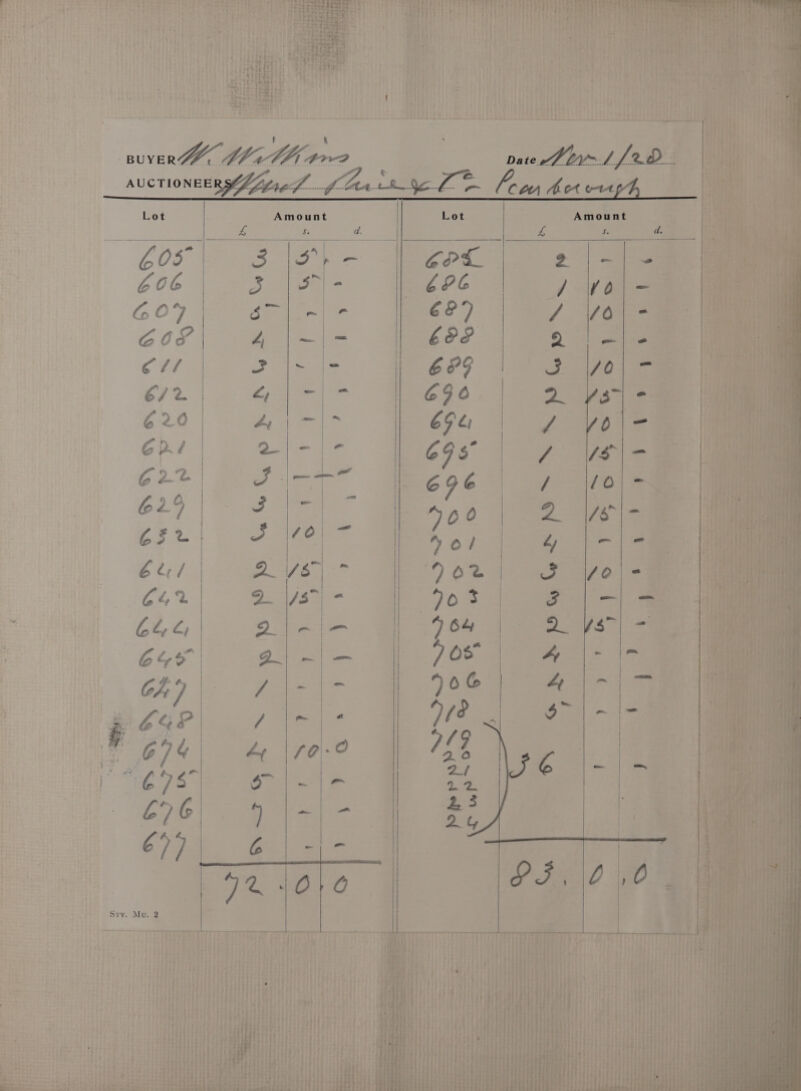 BUYER W. Watkins Date Nov 1/28
AUCTIONEERS Scarborough
Lot Amount Lot Amount
£ s. d. £ s. d.
605 3 5 - 685 2 - -
606 3 5 - 686 1 10 -
607 5 - - 687 1 10 -
608 4 - - 688 2 - -
611 3 - - 689 3 10 -
612 4 - - 690 2 15 -
620 4 - - 694 1 10 -
621 2 - - 695 1 15 -
622 3 - - 696 1 10 -
629 3 - - 700 2 15 -
632 3 10 - 701 4 - -
641 2 15 - 702 3 10 -
642 2 15 - 703 3 - -
644 2 - - 704 2 15 -
645 2 - - 705 4 - -
647 1 - - 706 4 - -
648 1 - - 718 5 - -
674 4 10.0 719
20
675 5 - - 21 36 - -
22
676 7 - - 23
24
677 6 - -
72.0.0 83.0.0
Sty. Mo. 2